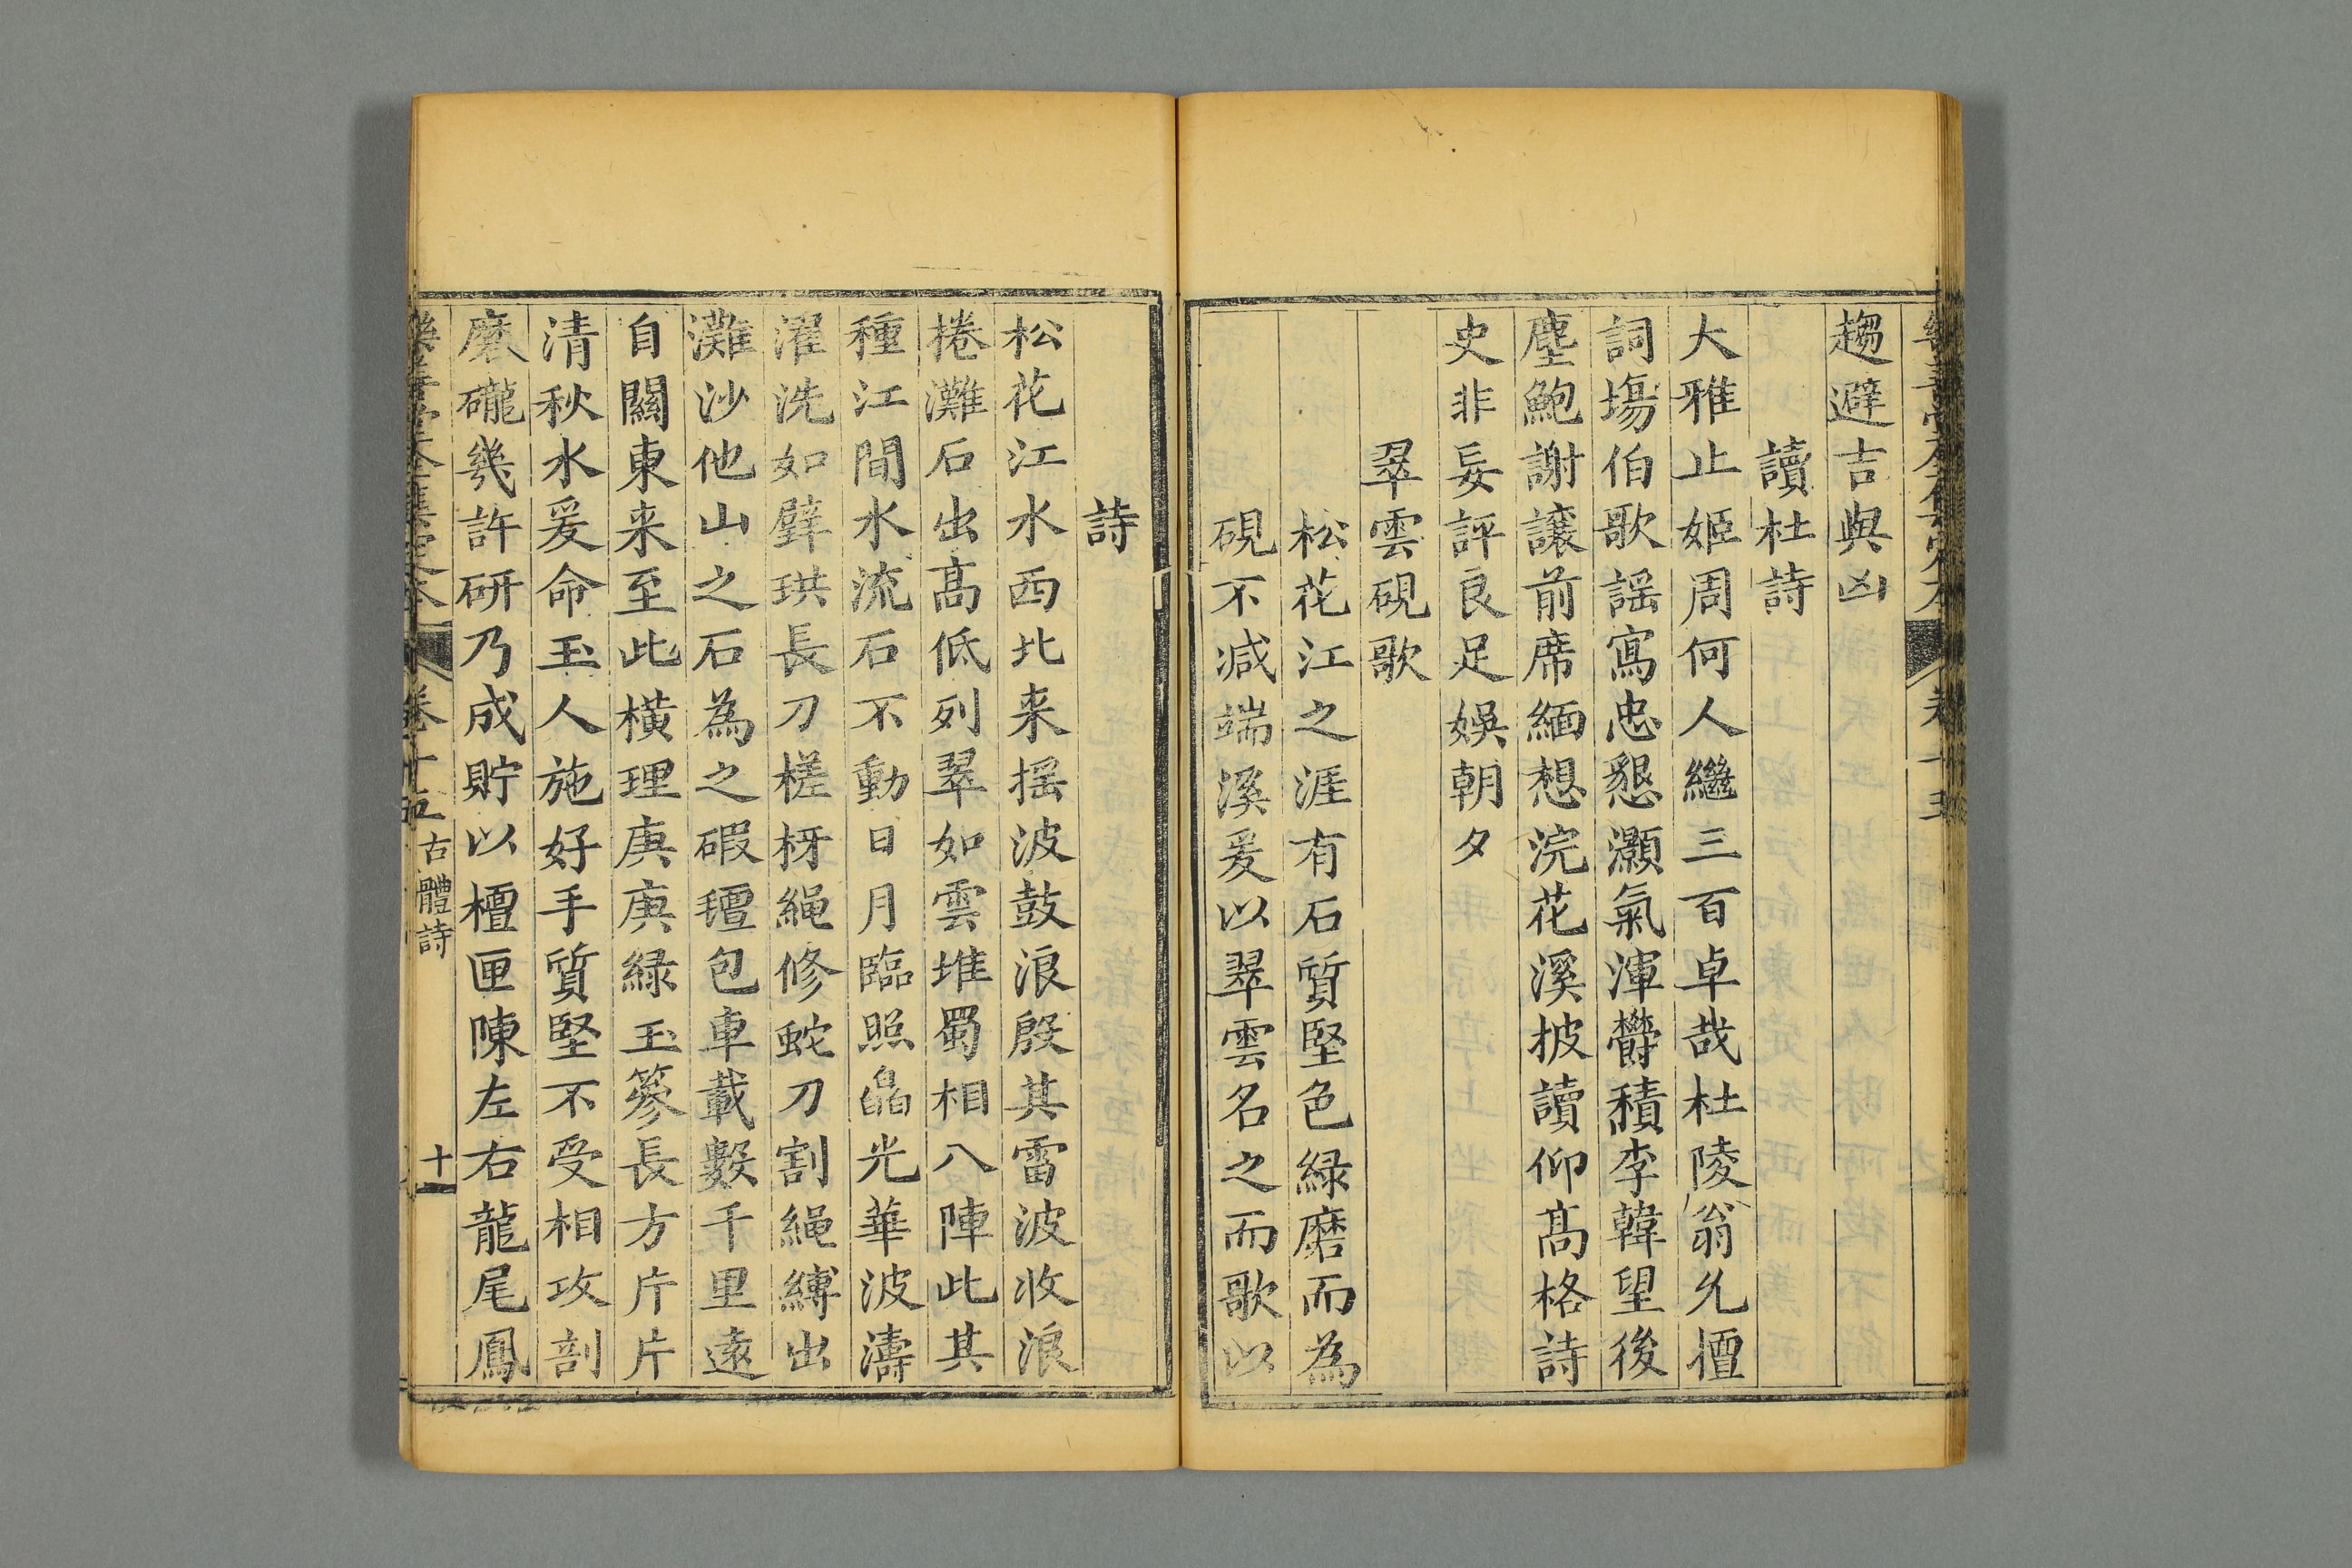 趨避吉與凶
讀杜詩
大雅止姬周何人繼三百卓哉杜陵翁允擅
詞塲伯歌謡寫忠懇灝氣渾欝積李韓望後
塵鮑謝讓前席緬想浣花溪披讀仰髙格詩
史非妄評良足娯朝夕
翠雲硯歌
松花江之涯有石質堅色緑磨而為
硯不减端溪爰以翠雲名之而歌以
詩
松花江水西北来揺波鼓浪殷其雷波收浪
捲灘石出髙低列翠如雲堆蜀相八陣此其
種江間水流石不動日月臨照皛光華波濤
濯洗如壁珙長刀槎枒繩修蛇刀割繩縛出
灘沙他山之石為之碬瓃包車載數千里逺
自關東来至此横理庚庚緑玉篸長方片片
清秋水爰命玉人施好手質堅不受相攻剖
磨礲幾許研乃成貯以檀匣陳左右龍尾鳳
卷十五
古體詩
十一